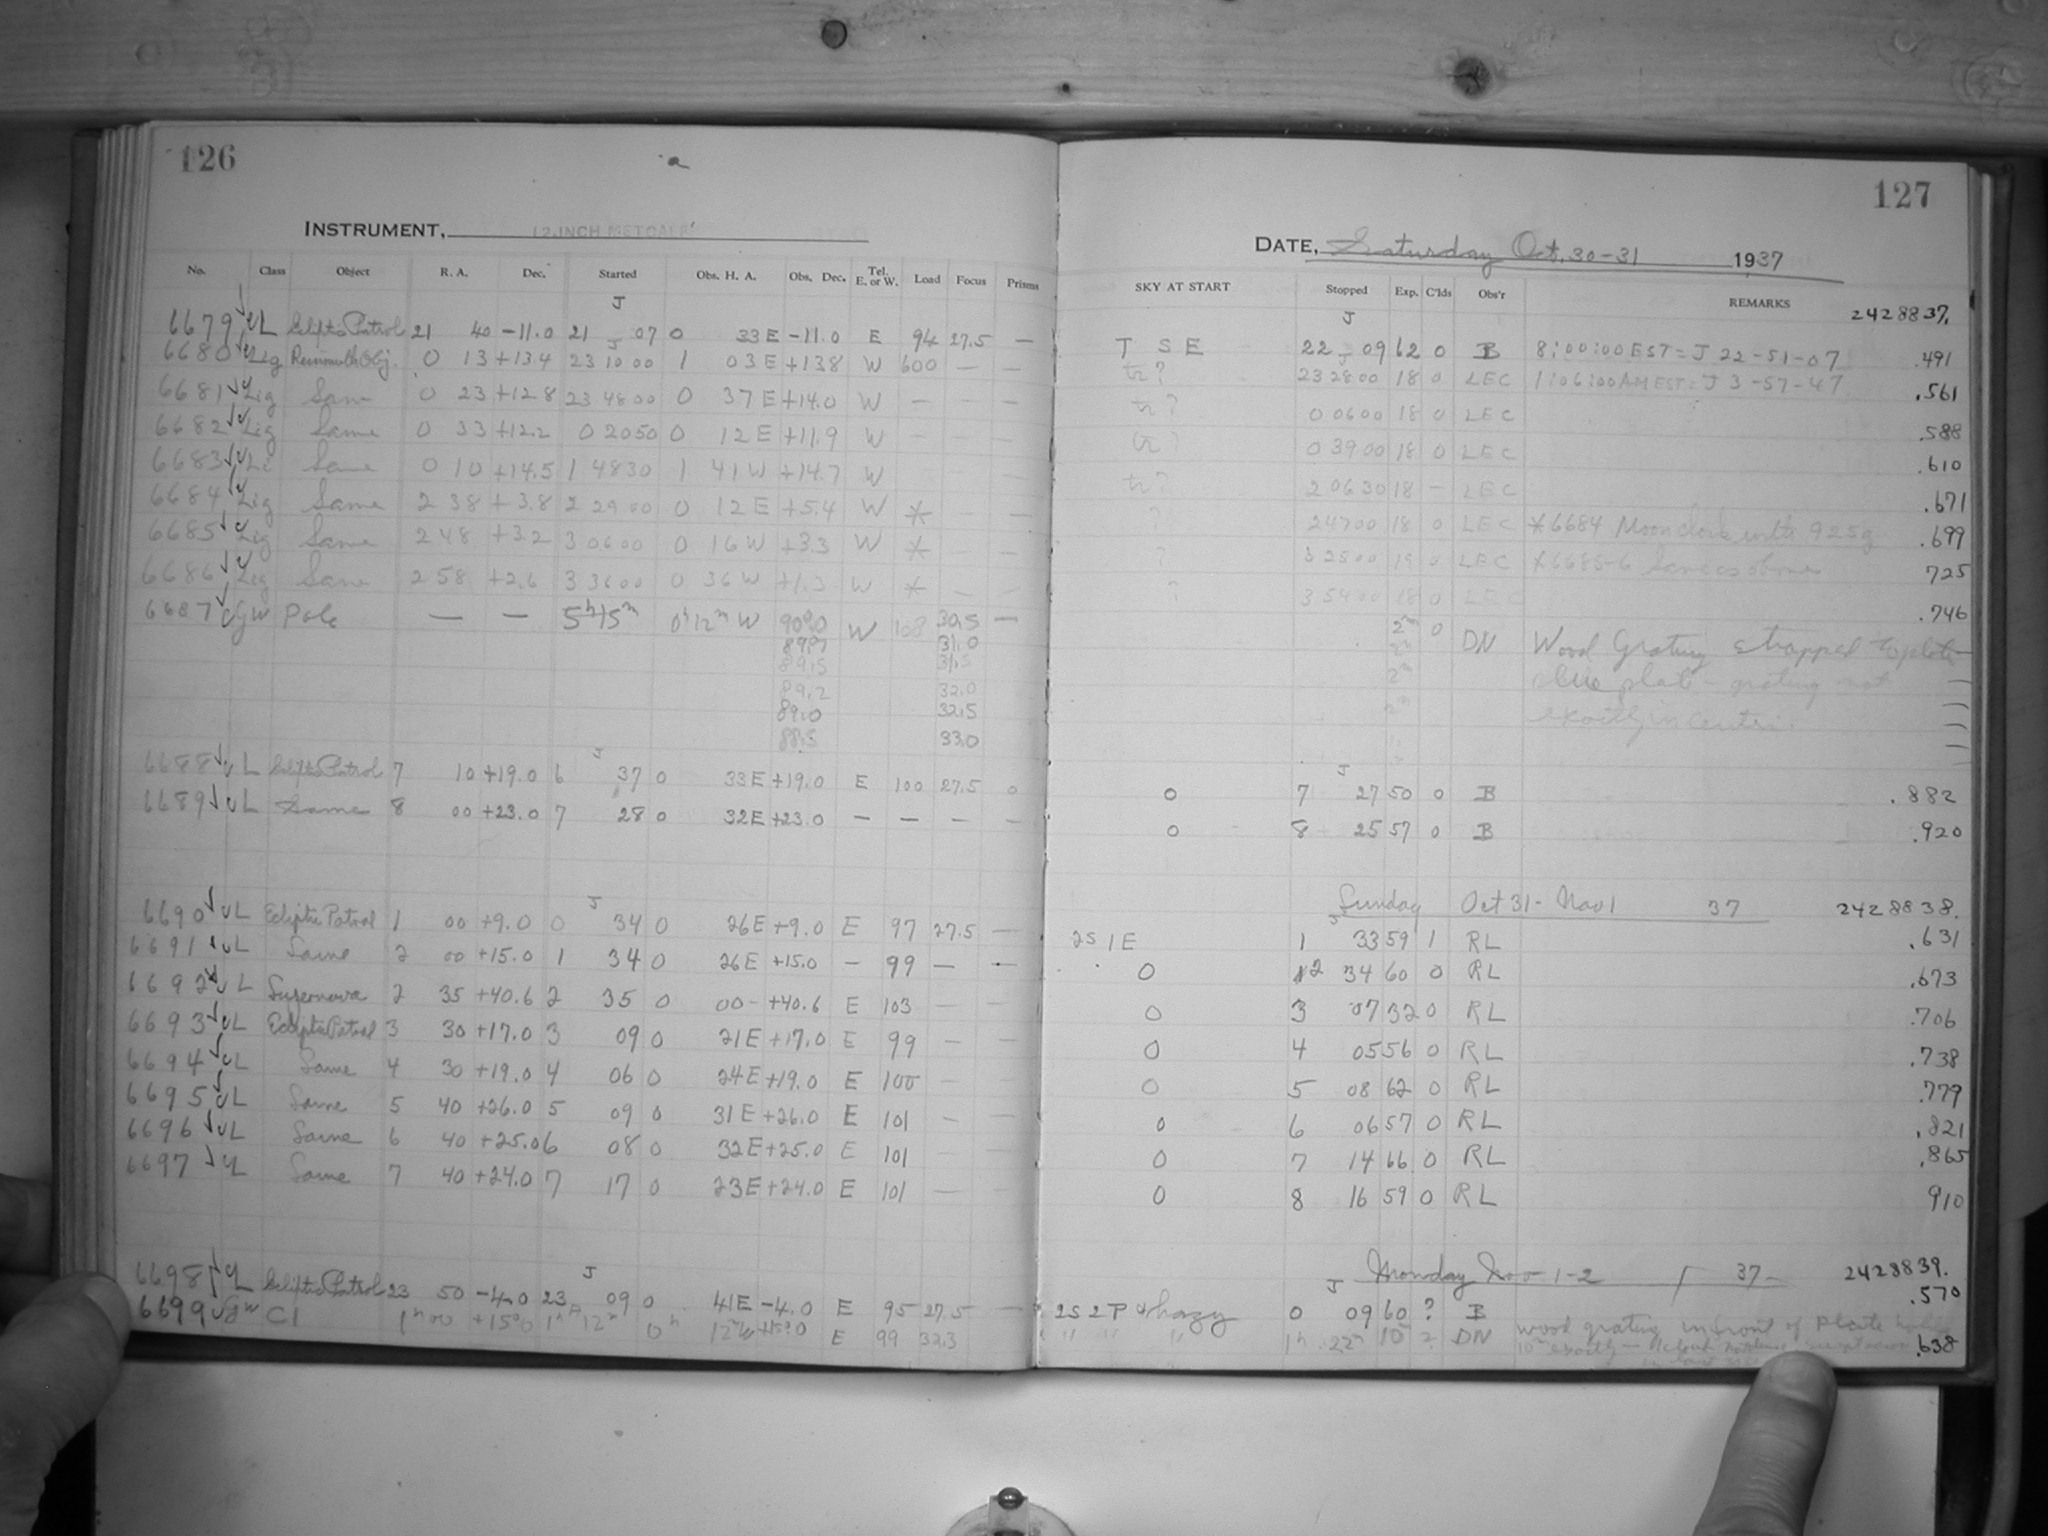 126
INSTRUMENT, 12-INCH METCALF
No. Class Object R. A. Dec. Started Obs. H. A. Obs. Dec. Tel. E. or W. Load Focus Prisms
J
6679 L Ecliptic Patrol 21 40 -11.0 21 07 0 33E -11.0 E 94 27.5 —
J
6680 Lig Reinmuth Obj. 0 13 +13.4 23 10 00 1 03 E +13.8 W 600 — —
6681 Lig Same 0 23 +12.8 23 48 00 0 37 E +14.0 W — — —
6682 Lig Same 0 33 +12.2 0 20 50 0 12 E +11.9 W — — —
6683 Li Same 0 10 +14.5 1 48 30 1 41 W +14.7 W —
6684 Lig Same 2 38 +3.8 2 29 00 0 12 E +5.4 W * — —
6685 Lig Same 2 48 +3.2 3 06 00 0 16 W +3.3 W * —
6686 Lig Same 2 58 +2.6 3 36 00 0 36 W +1.3 W * — —
6687 gw Pole — — 5h 15m 0h 12m W 90.0 W 108 30.5 —
31.0
89.5 31.5
89.2 32.0
89.0 32.5
88.5 33.0
J
6688 L Ecliptic Patrol 7 10 +19.0 6 37 0 33E +19.0 E 100 27.5 0
6689 L Same 8 00 +23.0 7 28 0 32E +23.0 — — — —
J
6690 L Ecliptic Patrol 1 00 +9.0 0 34 0 26E +9.0 E 97 27.5 —
6691 L Same 2 00 +15.0 1 34 0 26E +15.0 — 99 — —
6692 L Supernova 2 35 +40.6 2 35 0 00 - +40.6 E 103 — —
6693 L Ecliptic Patrol 3 30 +17.0 3 09 0 21E +17.0 E 99 — —
6694 L Same 4 30 +19.0 4 06 0 24E +19.0 E 100 —
6695 L Same 5 40 +26.0 5 09 0 31E +26.0 E 101 —
6696 L Same 6 40 +25.0 6 08 0 32E +25.0 E 101
6697 L Same 7 40 +24.0 7 17 0 23E +24.0 E 101 — —
J
6698 L Ecliptic Patrol 23 50 -4.0 23 09 0 41E -4.0 E 95 27.5 —
6699 gw C1 1h 00 +15.0 1h 12m 0h 12m W +15.0 E 99 32.3
127
DATE, Saturday Oct. 30-31 1937
SKY AT START Stopped Exp. C'lds Obs'r REMARKS
J 2428837.
T S E 22 09 62 0 B 8:00:00 EST = J 22-51-07 .491
tr? 23 28 00 18 0 LEC 1:06:00 AM EST = J 3-57-47 .561
tr? 0 06 00 18 0 LEC .588
tr? 0 39 00 18 0 LEC .610
tr? 2 06 30 18 — LEC .671
? 2 47 00 18 0 LEC *6684 Moon clock with 925g .699
? 3 25 00 19 0 LEC *6685-6 Same as above 725
? 3 54 00 18 0 LEC .746
2m 0 DN Wood Grating strapped to plate
2m plate - grating not
exactly in center.
J
0 7 27 50 0 B .882
0 8 25 57 0 B .920
Sunday Oct 31 - Nov 1 37 2428838.
2S 1E 1 33 59 1 RL .631
0 2 34 60 0 RL .673
0 3 07 32 0 RL .706
0 4 05 56 0 RL .738
0 5 08 62 0 RL .779
0 6 06 57 0 RL .821
0 7 14 66 0 RL .865
0 8 16 59 0 RL 910
Monday Nov 1-2 37 2428839.
J
2S 2P & hazy 0 09 60 ? B .570
" " " 1h 22m 10m ? DN wood grating in front of plate .638
10m exactly —